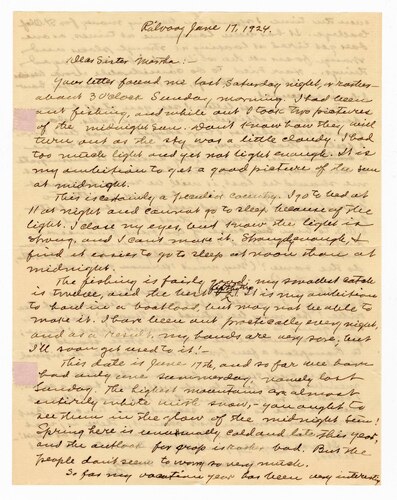 June 17, 1924.
Dear Sister Martha:-
Your letter found me last Saturday night, or rather
about 3 o'clock Sunday morning. I had been
out fishing, and while out I took two pictures
of the midnight sun. Don't know how they will
turn out as the sky was a little cloudy. I had
too much light and yet not light enough. It is
my ambition to get a good picture of the sun
at midnight.
This is certainly a peculiar country. I go to bed at
11 at night and cannot go to sleep because of the
light. I close my eyes, but know the light is
strong, and I can't make it. Strange enough, I
find it easier to go to sleep at noon than at
midnight.
The fishing is fairly good, my smallest catch
is twelve, and the best It is my ambition
to haul in a boatload, but may not be able to
make it. I have been out practically every night,
and as a result, my hands are very sore, but
I'll soon get used to it!-
This date is June 17th, and so far we have
had only one warm day, namely last
Sunday. The highest mountains are almost
entirely white with snow,- you ought to
see them in the glow of the midnight sun!
Spring here is unusually cold and late this year,
and the outlook for crop is rather bad. But the
people don't seem to worry so very much.
So far my vacation year has been very interesting